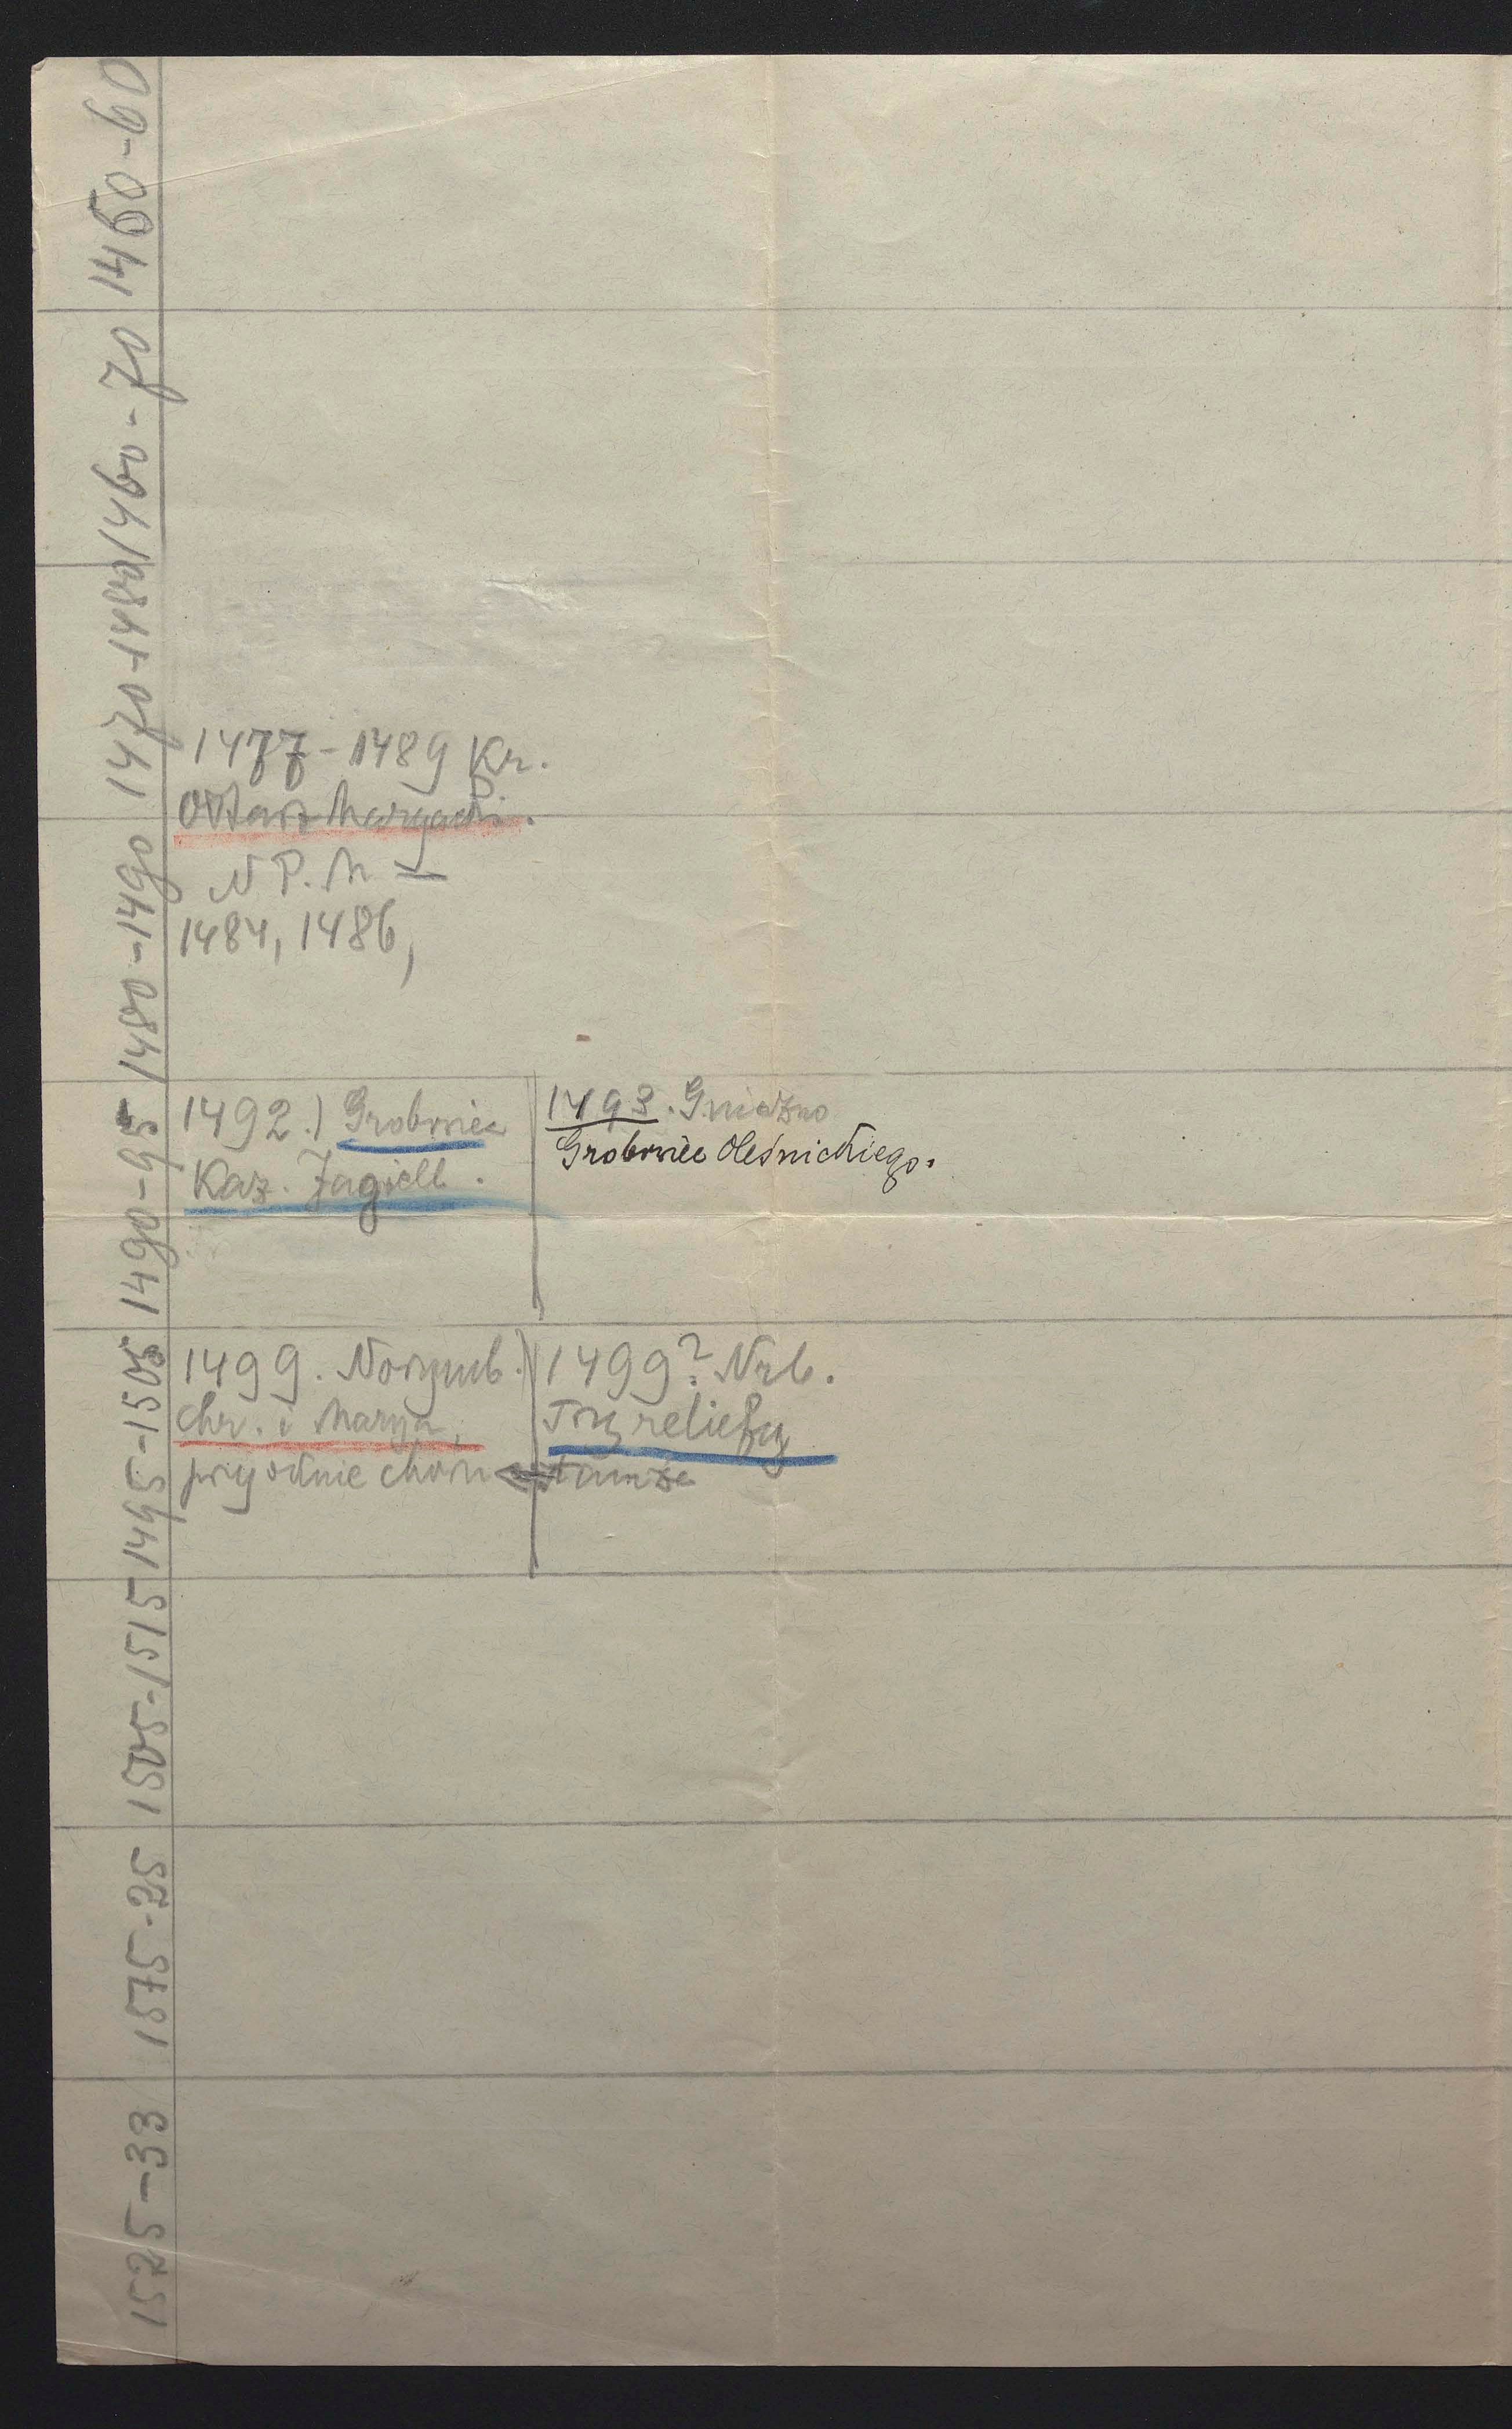 1450-60
1460-70
1470-1480
1477-1489 Kr.
Ołtarz Maryacki.
N P. M —
1480-1490
1484, 1486,
1490-95
1492.) Grobowiec
Kaz. Jagiell.
1493. Gniezno
Grobowiec Oleśnickiego.
1495-1505
1499. Norymb.
Chr. i Marya,
1499? Nrb.
Trzy reliefy
tamże
1505-1515
1575-25
1525-33